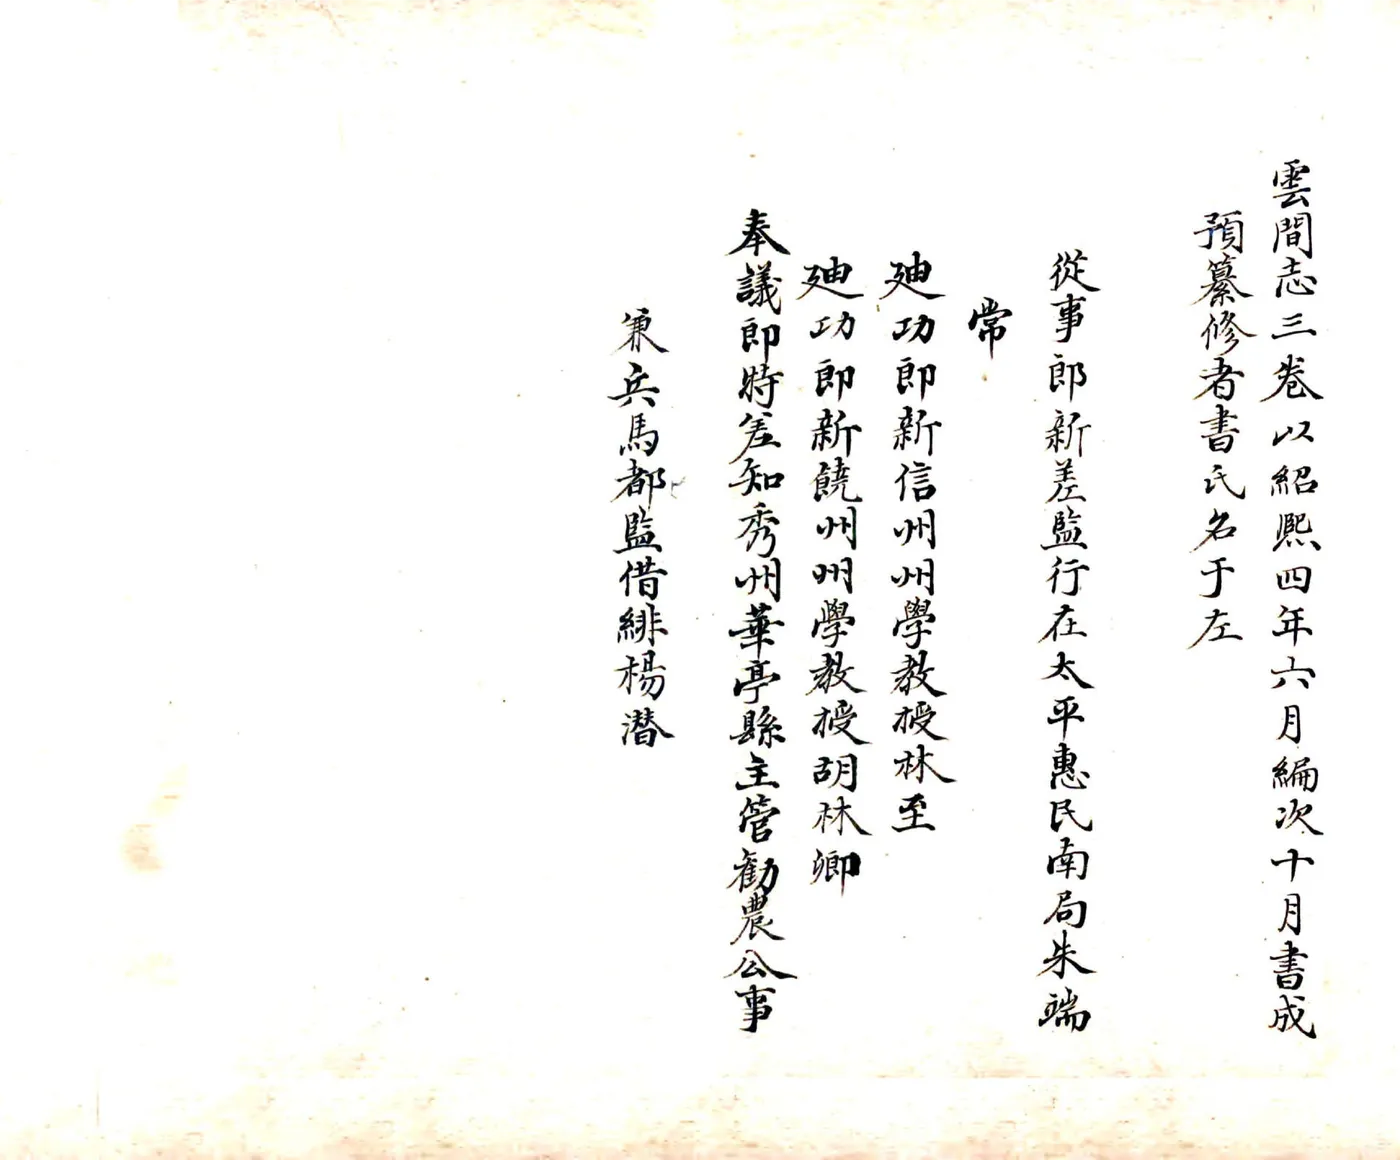 雲間志三卷以紹熙四年六月編次十月書成
預纂修者書氏名于左
從事郎新差監行在太平惠民南局朱端
常
廸功郎新信州州學教授林至
廸功郎新饒州州學教授胡林卿
奉議郎特差知秀州華亭縣主管勸農公事
兼兵馬都監借緋楊潛